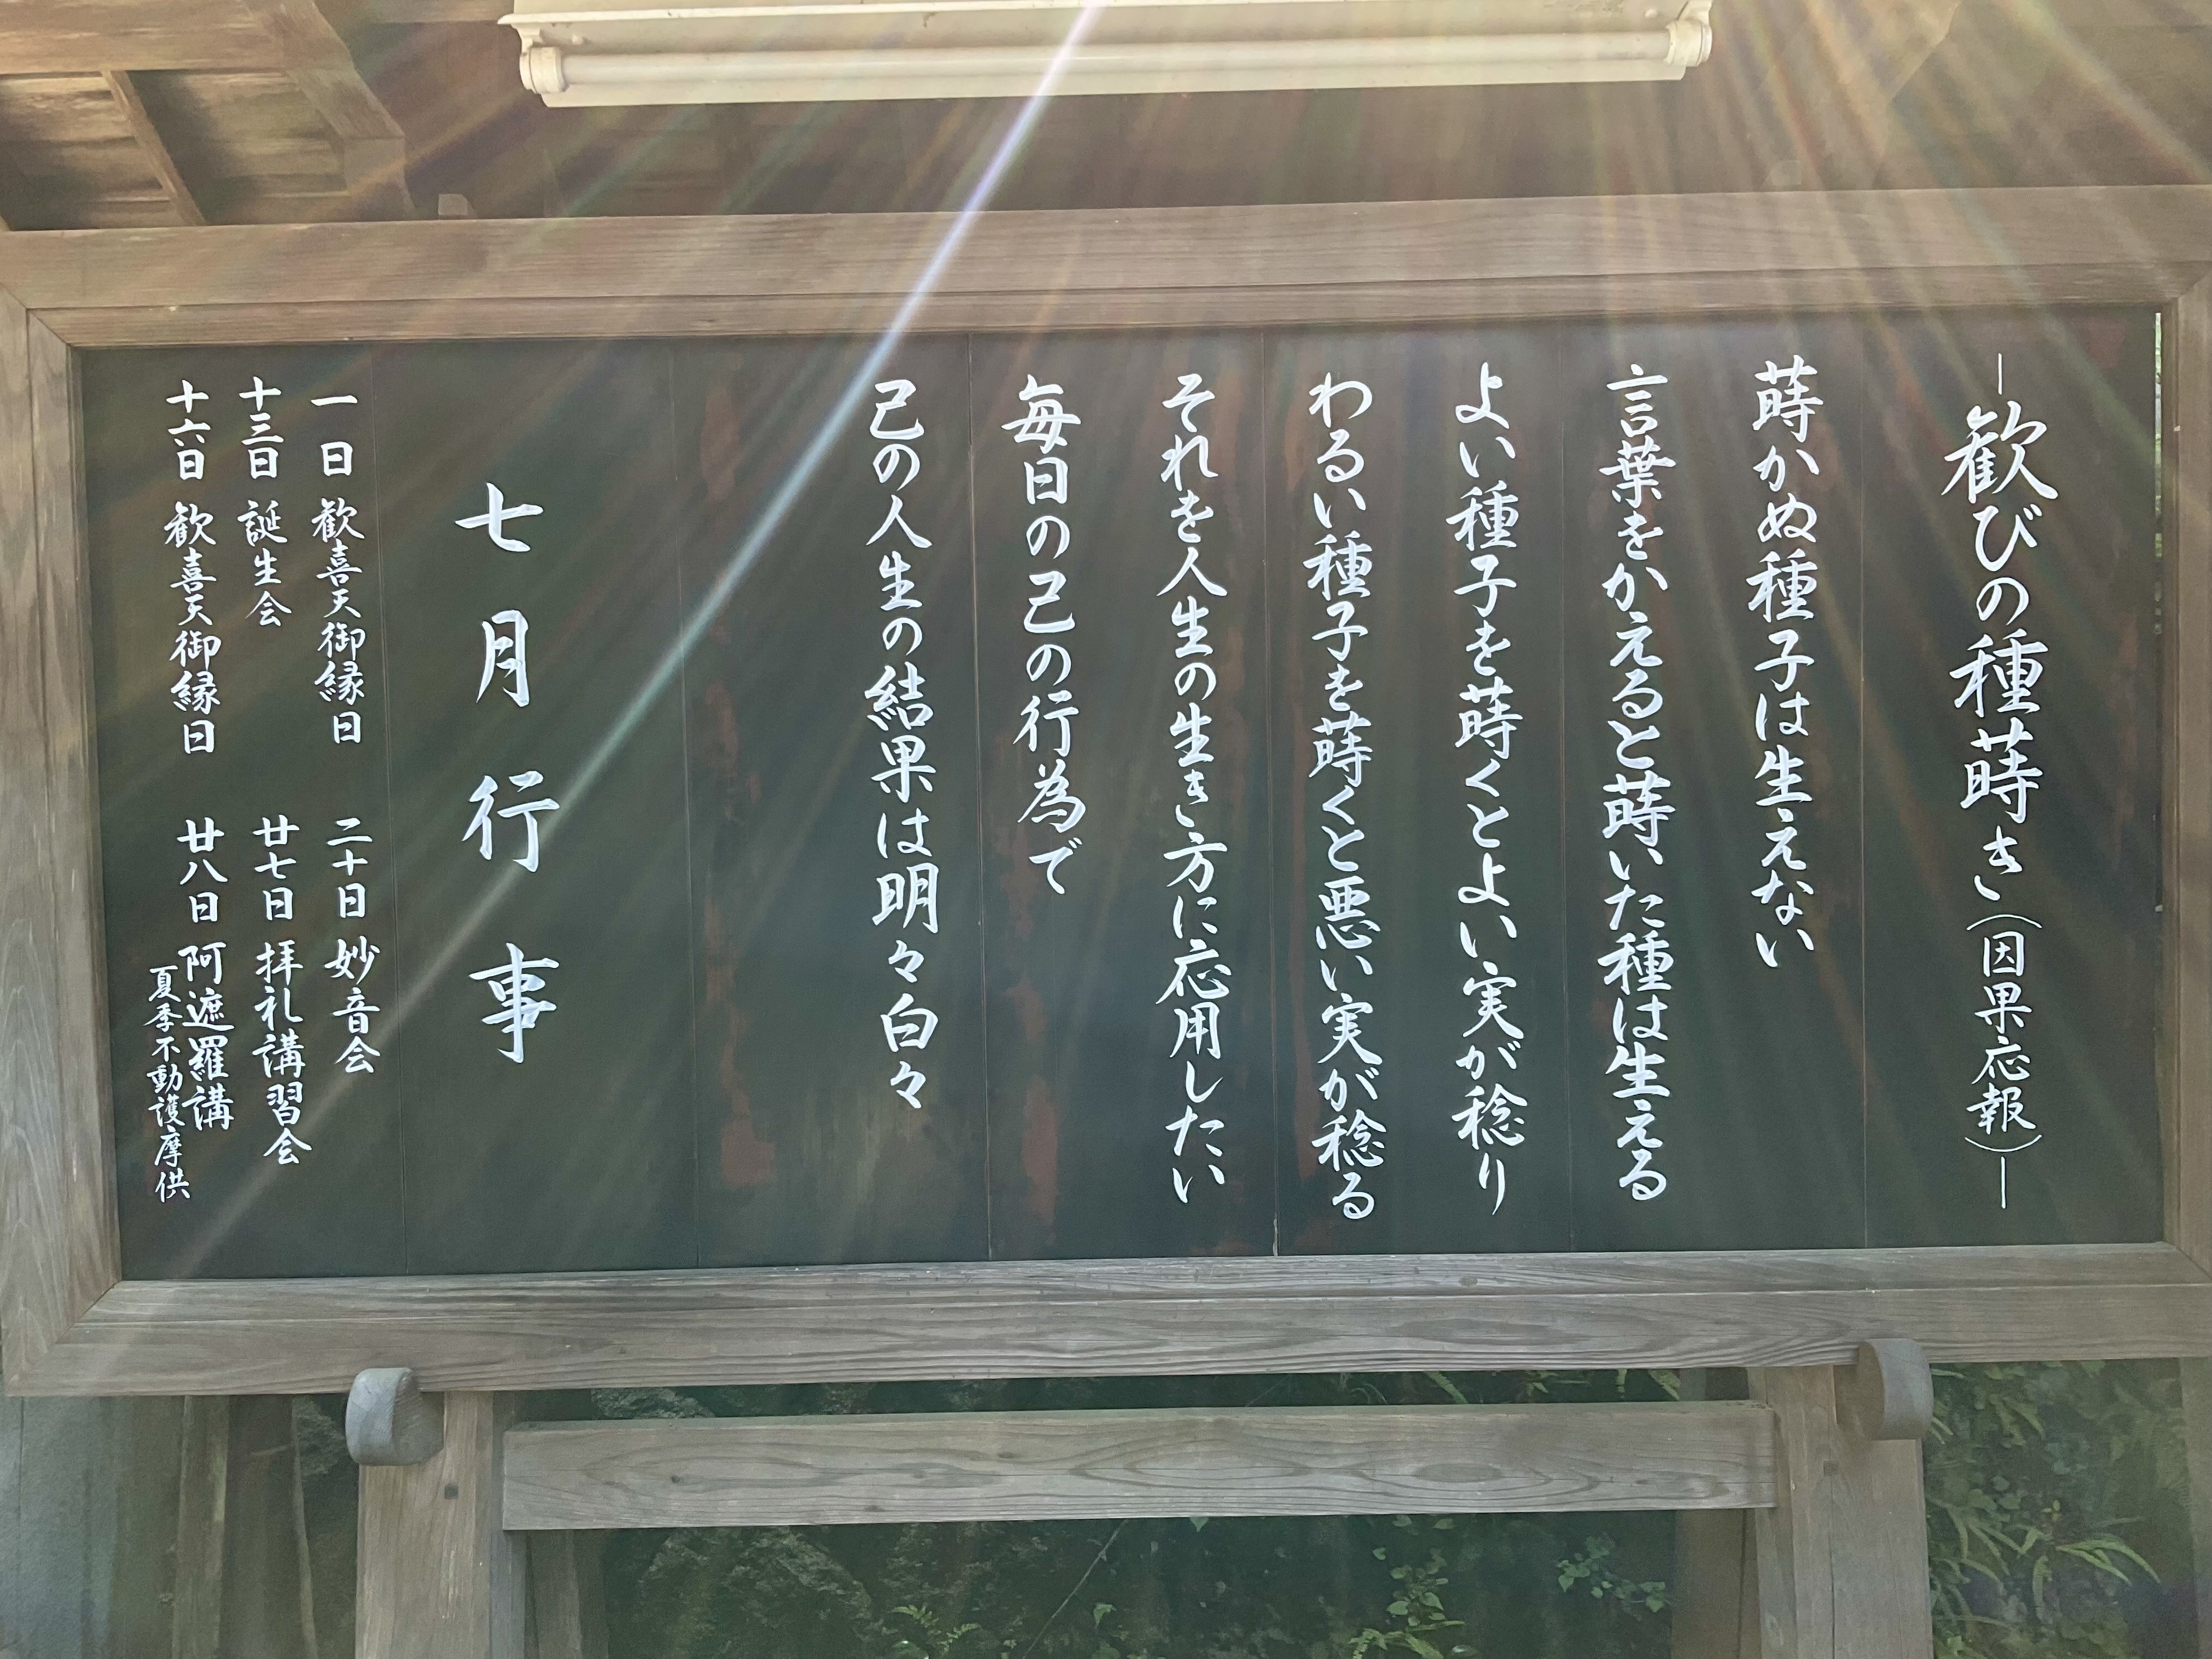 ―歓びの種蒔き(因果応報)―
蒔かぬ種子は生えない
言葉をかえると蒔いた種は生える
よい種子を蒔くとよい実が稔り
わるい種子を蒔くと悪い実が稔る
それを人生の生き方に応用したい
毎日の己の行為で
己の人生の結果は明々白々
七月行事
一日 歓喜天御縁日
十三日 誕生会
十六日 歓喜天御縁日
二十日 妙音会
廿七日 拝礼講習会
廿八日 阿遮羅講
夏季不動護摩供